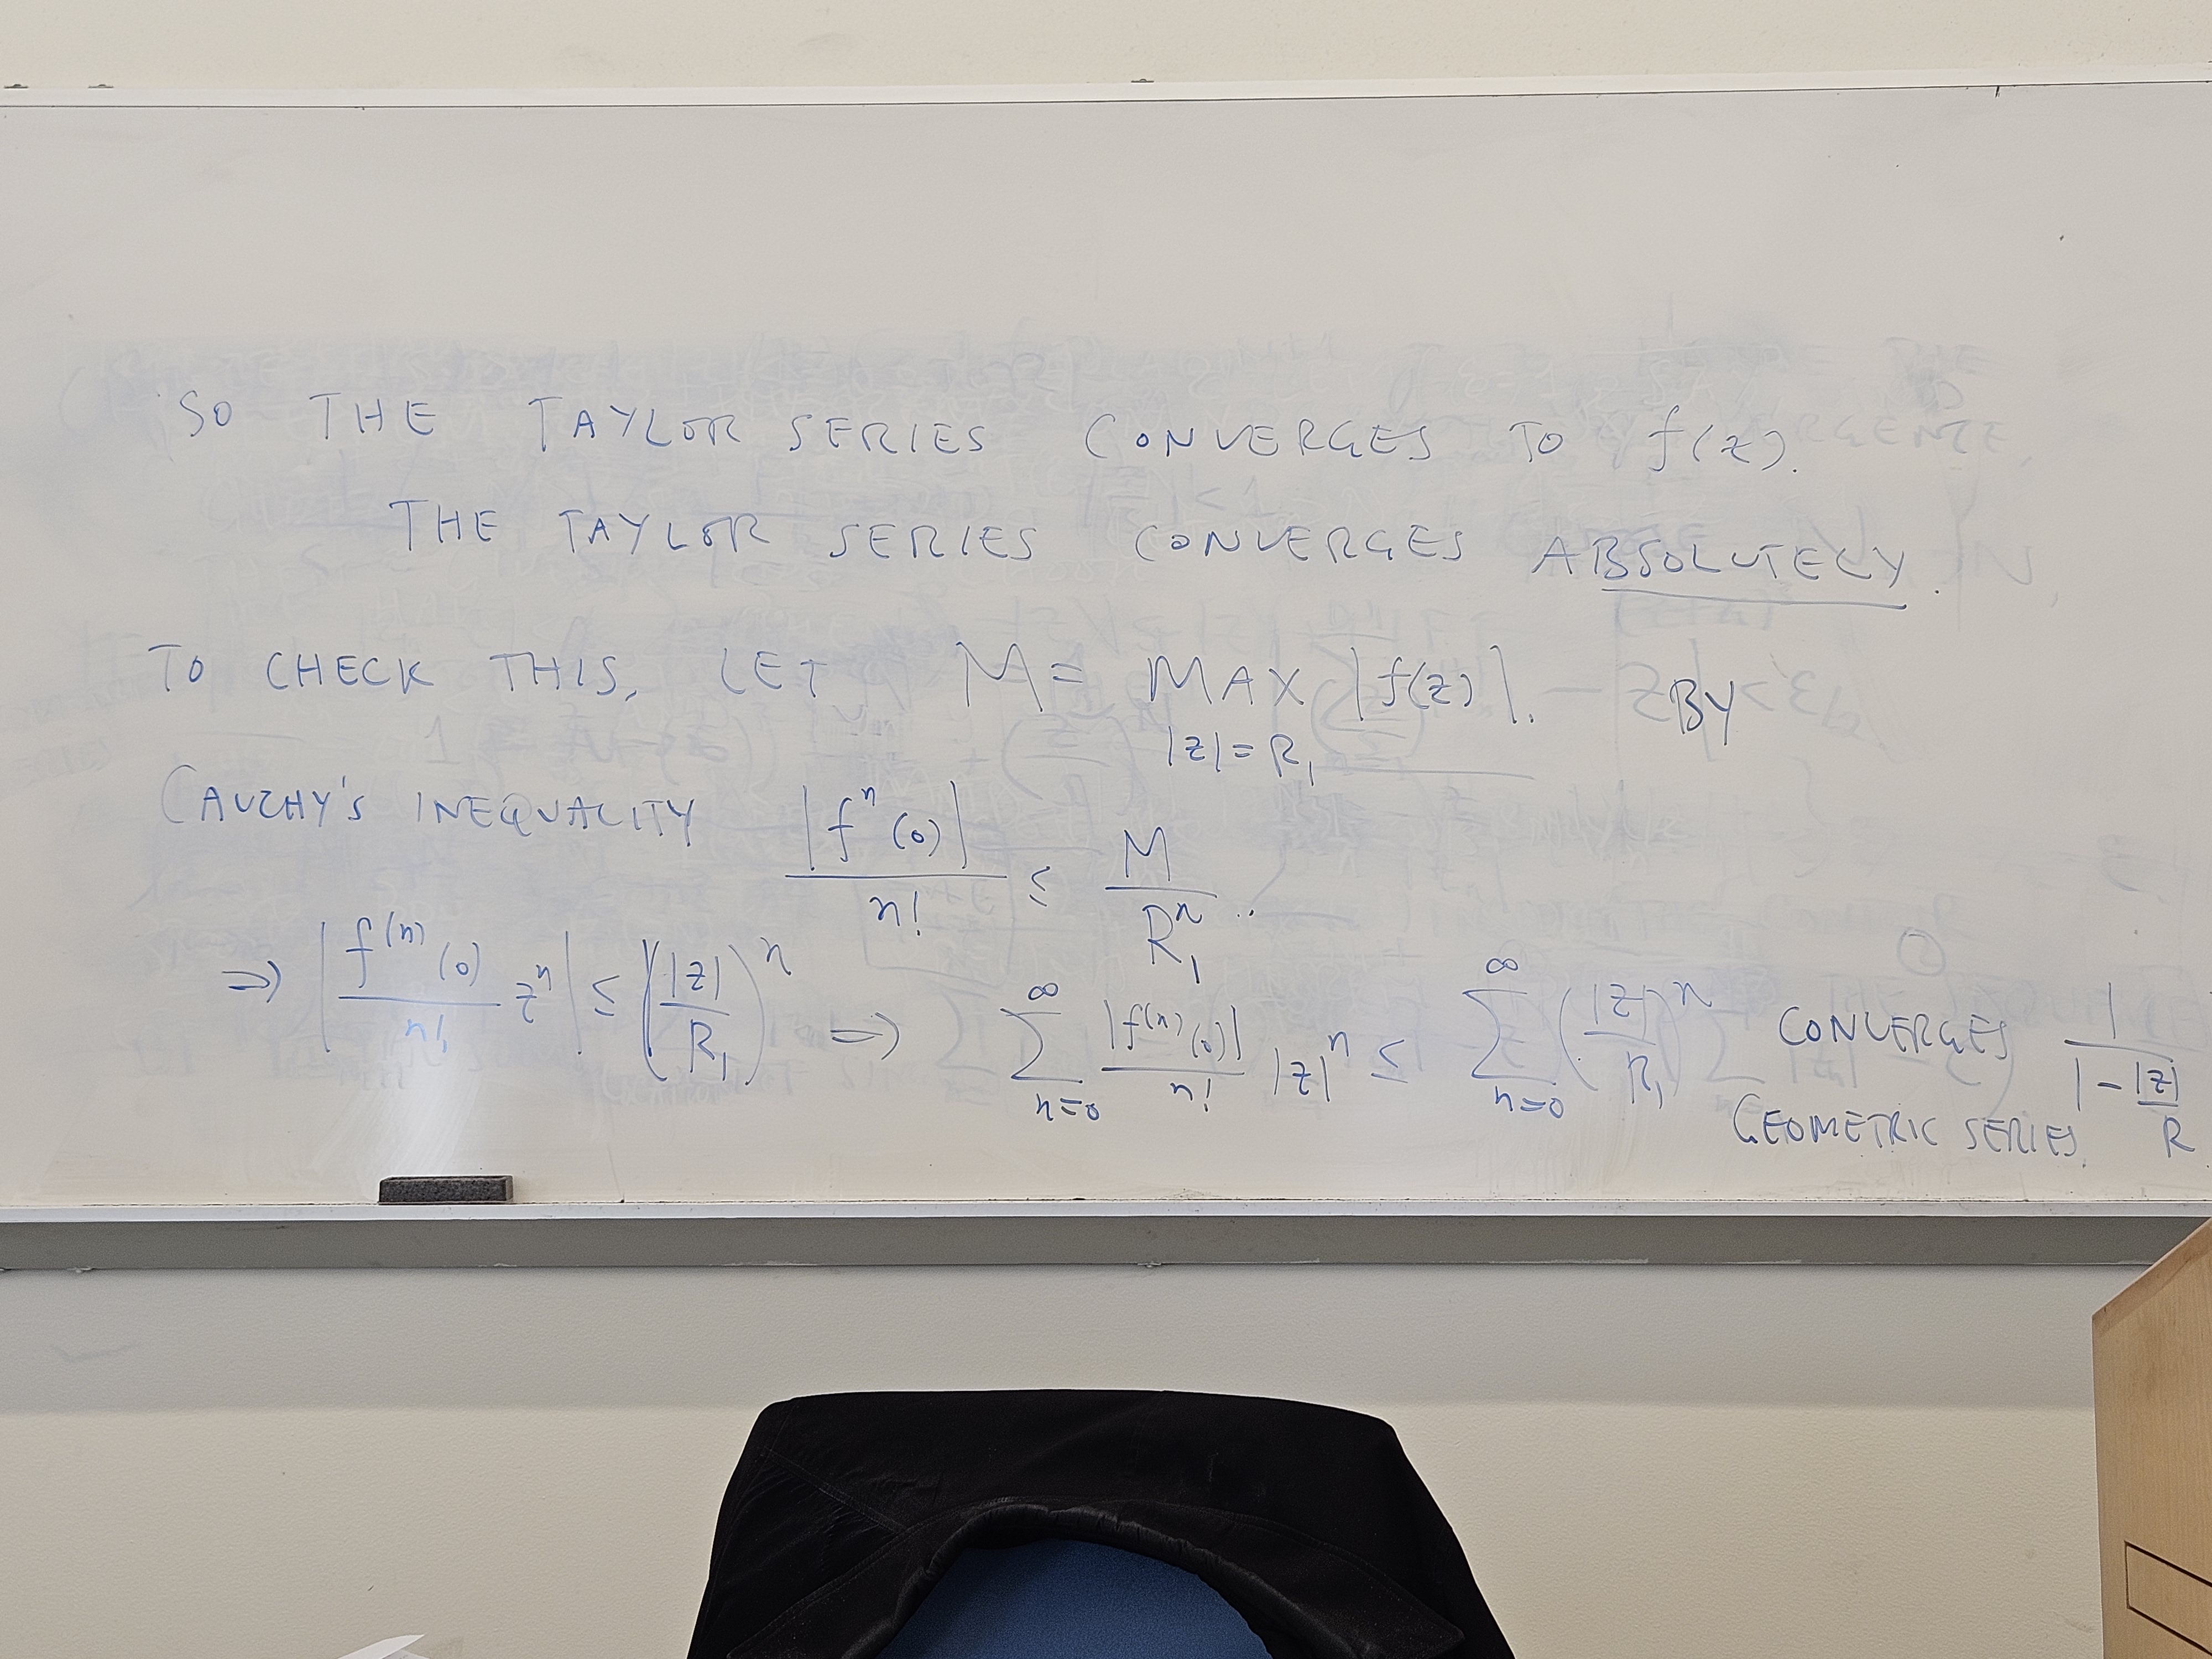 SO THE TAYLOR SERIES CONVERGES TO f(z).
THE TAYLOR SERIES CONVERGES ABSOLUTELY.
TO CHECK THIS, LET M = MAX |f(z)|. BY
|z| = R₁
CAUCHY'S INEQUALITY |fⁿ(0)| / n! ≤ M / R₁ⁿ ..
⇒ | f⁽ⁿ⁾(0) / n! zⁿ | ≤ (|z| / R₁)ⁿ ⇒ ∑_{n=0}^{∞} |f⁽ⁿ⁾(0)| / n! |z|ⁿ ≤ ∑_{n=0}^{∞} (|z| / R₁)ⁿ CONVERGES 1 / (1 - |z| / R)
GEOMETRIC SERIES.